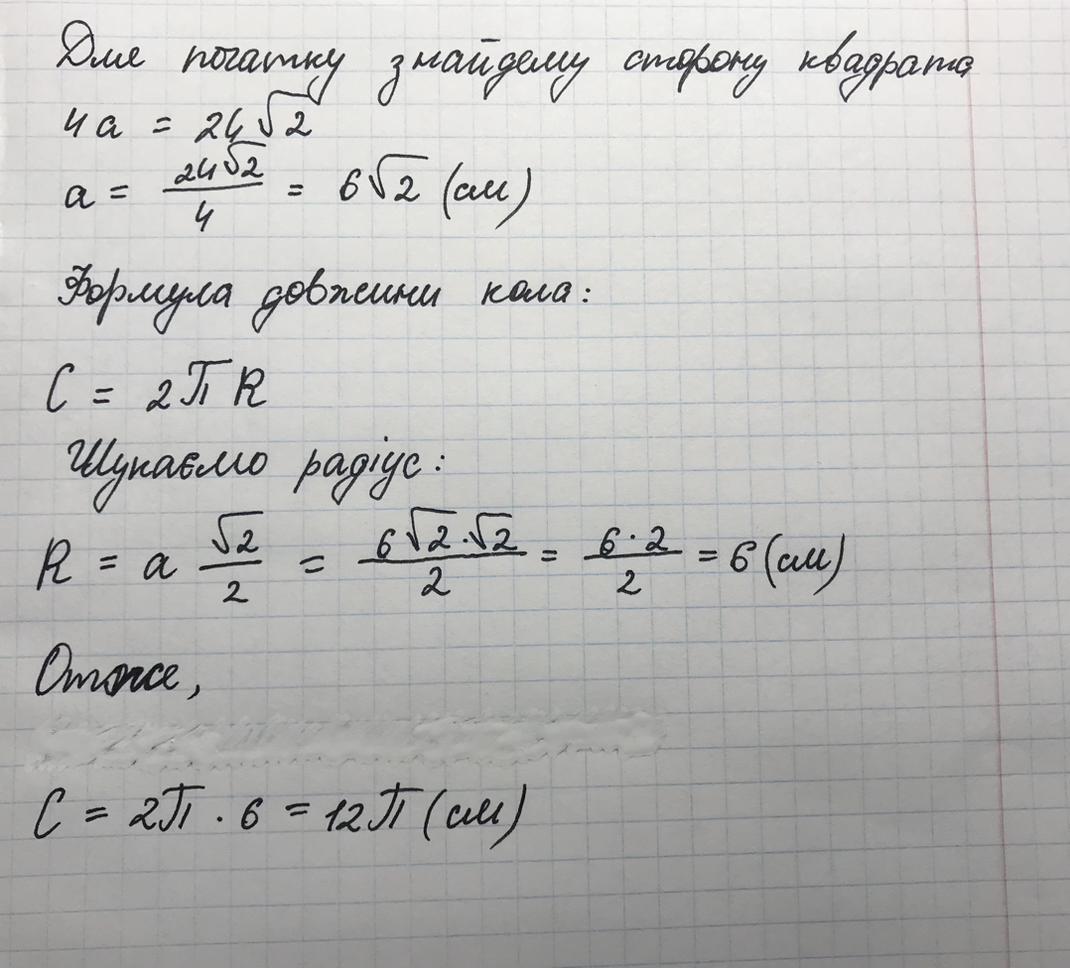 Для початку знайдему сторону квадрата
4a = 24√2
a = 24√2/4 = 6√2 (см)
Формула довжини кола:
C = 2πR
Шукаємо радіус:
R = a √2/2 = 6√2·√2/2 = 6·2/2 = 6 (см)
Отже,
C = 2π · 6 = 12π (см)